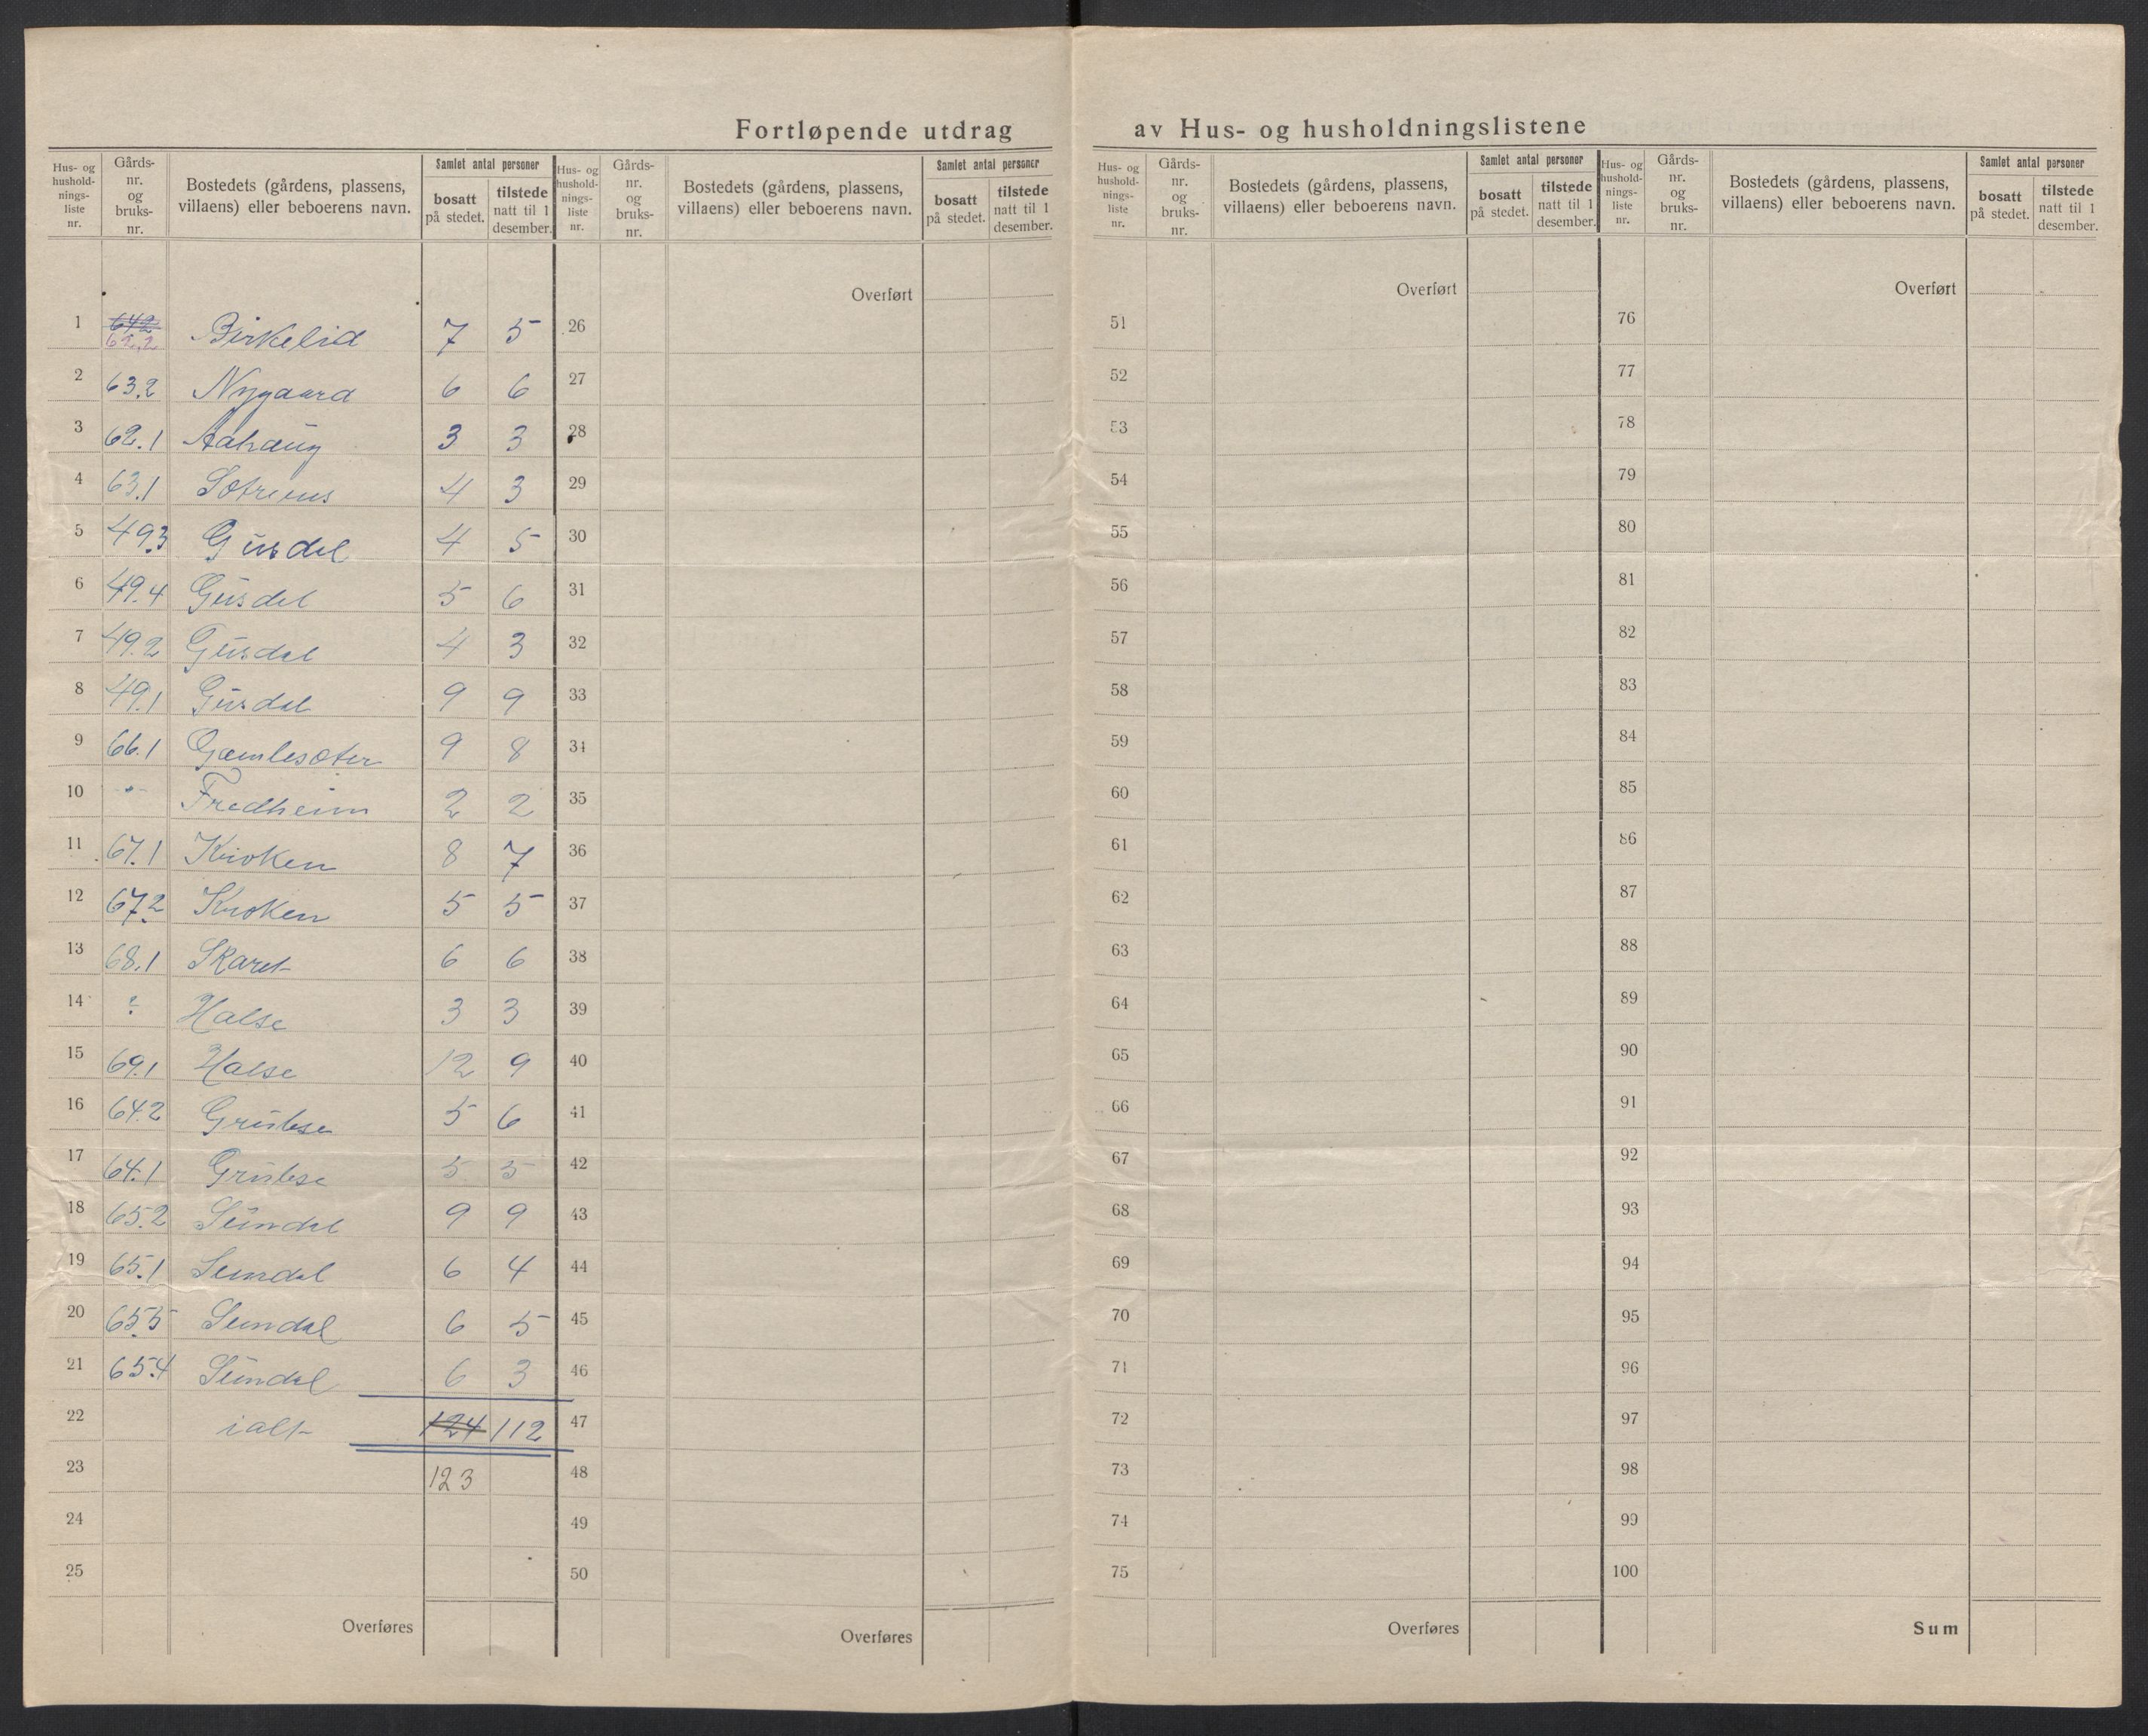 Fortløpende utdrag av Hus- og husholdningslistene
Hus- og hushold- nings- liste nr. | Gårds- nr. og bruks- nr. | Bostedets (gårdens, plassens, villaens) eller beboerens navn. | Samlet antal personer | bosatt på stedet. | tilstede natt til 1 desember.
Hus- og hushold- nings- liste nr. | Gårds- nr. og bruks- nr. | Bostedets (gårdens, plassens, villaens) eller beboerens navn. | Samlet antal personer | bosatt på stedet. | tilstede natt til 1 desember.
Hus- og hushold- nings- liste nr. | Gårds- nr. og bruks- nr. | Bostedets (gårdens, plassens, villaens) eller beboerens navn. | Samlet antal personer | bosatt på stedet. | tilstede natt til 1 desember.
Hus- og hushold- nings- liste nr. | Gårds- nr. og bruks- nr. | Bostedets (gårdens, plassens, villaens) eller beboerens navn. | Samlet antal personer | bosatt på stedet. | tilstede natt til 1 desember.
Overført Overført Overført
1 642 62.2 Birkelid 7 5 26 51 76
2 63.2 Nygaard 6 6 27 52 77
3 62.1 Aahaug 3 3 28 53 78
4 63.1 4 3 29 54 79
5 49.3 Gusdal 4 5 30 55 80
6 49.4 Gusdal 5 6 31 56 81
7 49.2 Gusdal 4 3 32 57 82
8 49.1 Gusdal 9 9 33 58 83
9 66.1 Gamlesæter 9 8 34 59 84
10 -"- Fredheim 2 2 35 60 85
11 67.1 Kroken 8 7 36 61 86
12 67.2 Kroken 5 5 37 62 87
13 68.1 Skaret 6 6 38 63 88
14 ? Halse 3 3 39 64 89
15 69.1 Halse 12 9 40 65 90
16 64.2 Grubse 5 6 41 66 91
17 64.1 Grubse 5 5 42 67 92
18 65.2 Sundal 9 9 43 68 93
19 65.1 Sundal 6 4 44 69 94
20 65.5 Sundal 6 5 45 70 95
21 65.4 Sundal 6 3 46 71 96
22 ialt 124 112 47 72 97
23 123 48 73 98
24 49 74 99
25 50 75 100
Overføres Overføres Overføres Sum